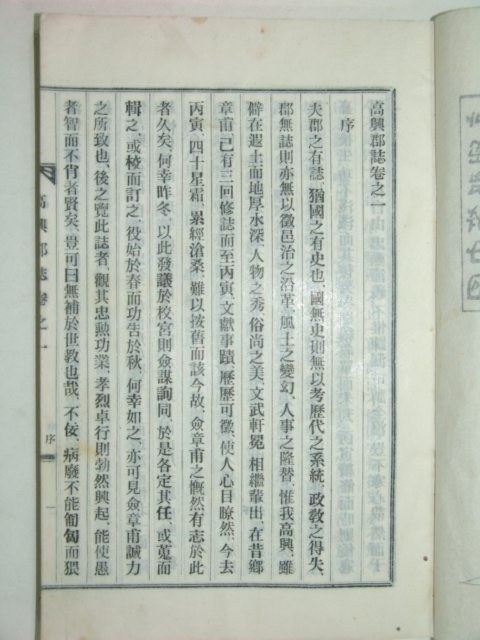 高興郡誌卷之一
序
夫郡之有誌、猶國之有史也、國無史則無以考歷代之系統、政敎之得失、
郡無誌則亦無以徵邑治之沿革、風土之變幻、人事之隆替、惟我高興、雖
僻在遐土而地厚水深、人物之秀、俗尙之美、文武軒冕、相繼輩出、在昔鄕
章甫己有三回修誌而至丙寅、文獻事蹟、歷歷可徵、使人心目瞭然、今去
丙寅、四十星霜、累經滄桑、難以按舊而該今故、僉章甫之慨然有志於此
者久矣、何幸昨冬、以此發議於校宮則僉謀詢同、於是各定其任、或蒐而
輯之、或梭而訂之、役始於春而功告於秋、何幸如之、亦可見僉章甫誠力
之所致也、後之覽此誌者、觀其忠勳功業、孝烈卓行則勃然興起、能使愚
者智而不肖者賢矣、豈可曰無補於世敎也哉、不侫、病廢不能匍匐而猥
高興郡誌卷之一
序
一